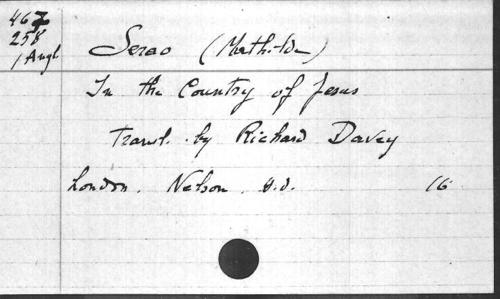 467
258
1 Angl
Serao (Mathilde)
In the Country of Jesus
Transl. by Richard Davey
London. Nelson. s.d. 16